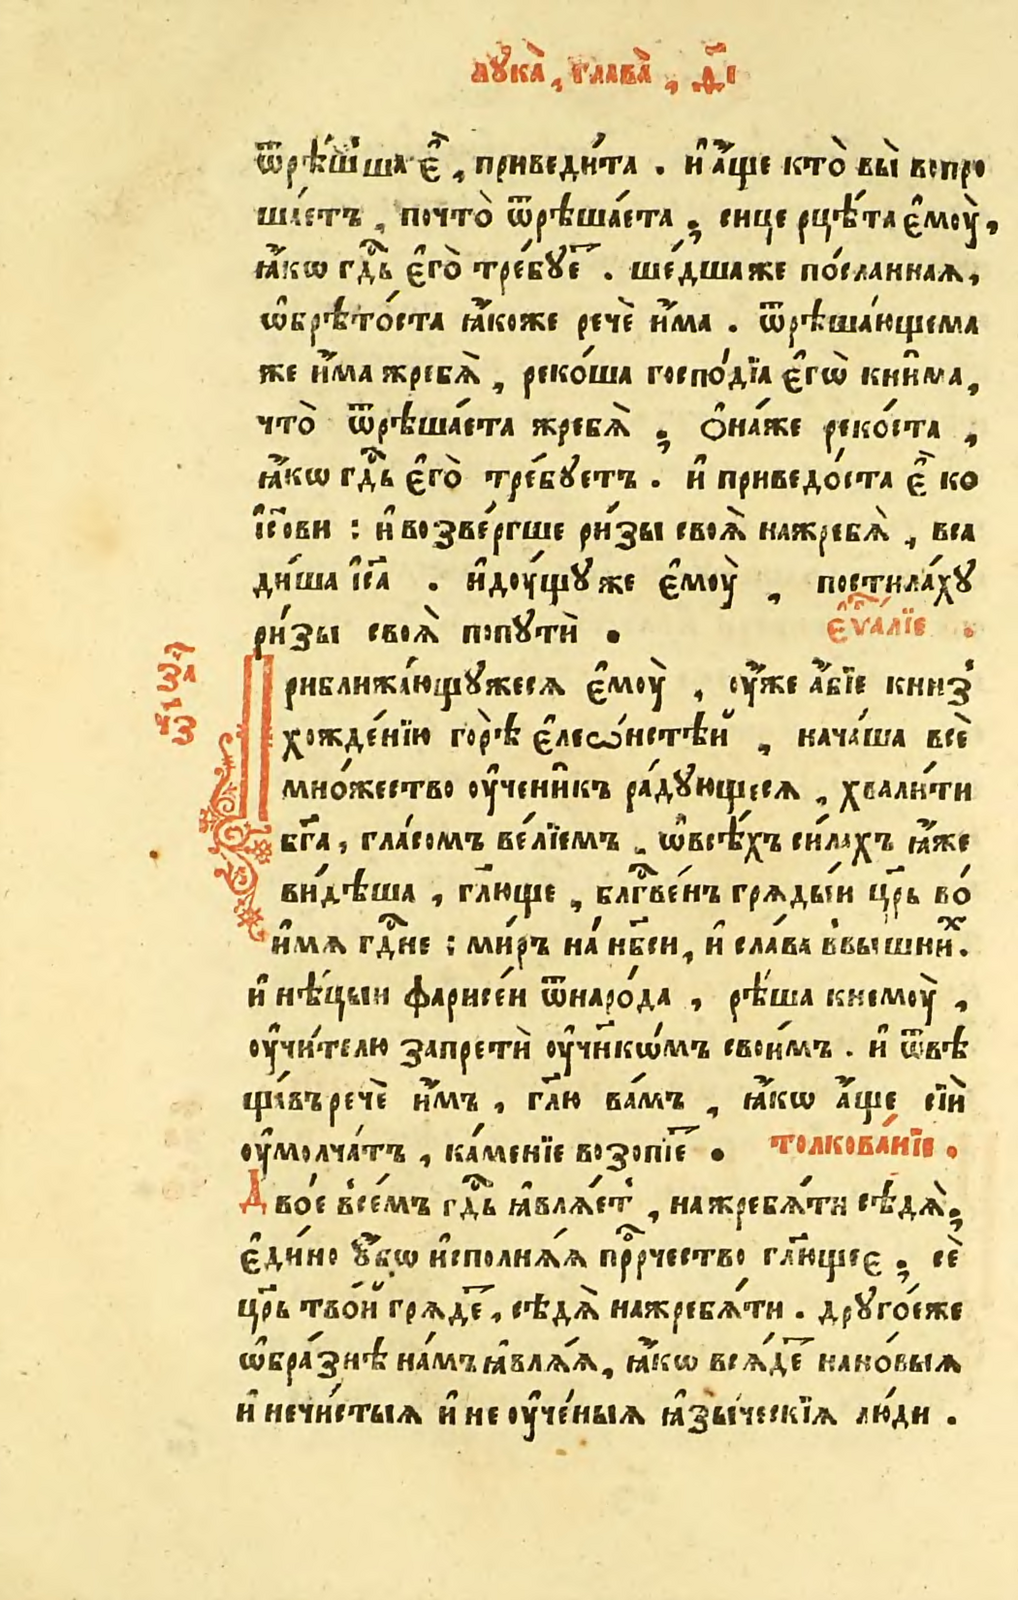 лꙋка̀, глава̀, ѳ҃і
ѿрѣ́шша є҆̀, приведи́та. и҆ а҆́ще кто̀ вы̀ вопро
ша́етъ, почто̀ ѿрѣша́ета; сице рцѣ́та є҆моꙋ̀,
ꙗ҆́кѡ гдⷭ҇ь є҆го̀ тре́бꙋеⷮ. ше́дшаже по́сланнаѧ,
ѡ҆брѣто́ста ꙗ҆́коже речѐ и҆́ма. ѿрѣша́ющема
же и҆́ма жребѧ̀, реко́ша госпо́дїа є҆гѡ̀ кни́ма,
что̀ ѿрѣша́ета жребѧ̀; ѻ҆на́же реко́ста,
ꙗ҆́кѡ гдⷭ҇ь є҆го̀ тре́бꙋетъ. и҆ приведо́ста є҆̀ ко
і҆с҃ови: и҆ возве́ргше ри́зы своѧ̀ нажребѧ̀, вса
ди́ша і҆с҃а. и҆дꙋ́щꙋже є҆моꙋ̀, постила́хꙋ
ри́зы своѧ̀ попꙋтѝ. є҆ѵⷢ҇а́лїе.
Приближа́ющꙋжесѧ є҆моꙋ̀, оу҆́же а҆́бїе книз̾
хожде́нїю го́рѣ є҆леѡ́нстѣй, нача́ша всѐ
мно́жество оу҆чени́къ ра́дꙋющесѧ, хвали́ти
бг҃а, гла́сомъ ве́лїемъ, ѡ҆всѣ́хъ си́лахъ ꙗ҆́же
ви́дѣша, гл҃юще, блгⷭ҇ве́нъ грѧды́и цр҃ь во́
и҆мѧ гдⷭ҇не: ми́ръ на́ нб҃си, и҆ сла́ва в̾вы́шниⷯ.
и҆ нѣ́цыи фарисе́и ѿнаро́да, рѣ́ша кнемоꙋ̀,
оу҆чи́телю запретѝ оу҆чн҃кѡ́мъ свои́мъ. и҆ ѿвѣ
ща́въ речѐ и҆́мъ, гл҃ю ва́мъ, ꙗ҆́кѡ а҆́ще сїѝ
оу҆молча́тъ, ка́менїе возопїеⷮ. толкова́нїе.
Дво́е в̾се́мъ гдⷭ҇ь ꙗ҆влѧ́ет̾, нажребѧ́ти сѣдѧ̀;
є҆ди́но оу҆́бѡ и҆сполнѧ́ѧ прⷪ҇рчество гл҃ющеє; сѐ
цр҃ь тво́й грѧде́ⷮ, сѣдѧ̀ нажребѧ́ти. дрꙋго́еже
ѡ҆бра́знѣ на́мъ ꙗ҆влѧ́ѧ, ꙗ҆́кѡ всѧ́деⷮ нано́выѧ
и҆ нечи́стыѧ и҆ не оу҆че́ныѧ ꙗ҆зы́ческїѧ лю́ди.